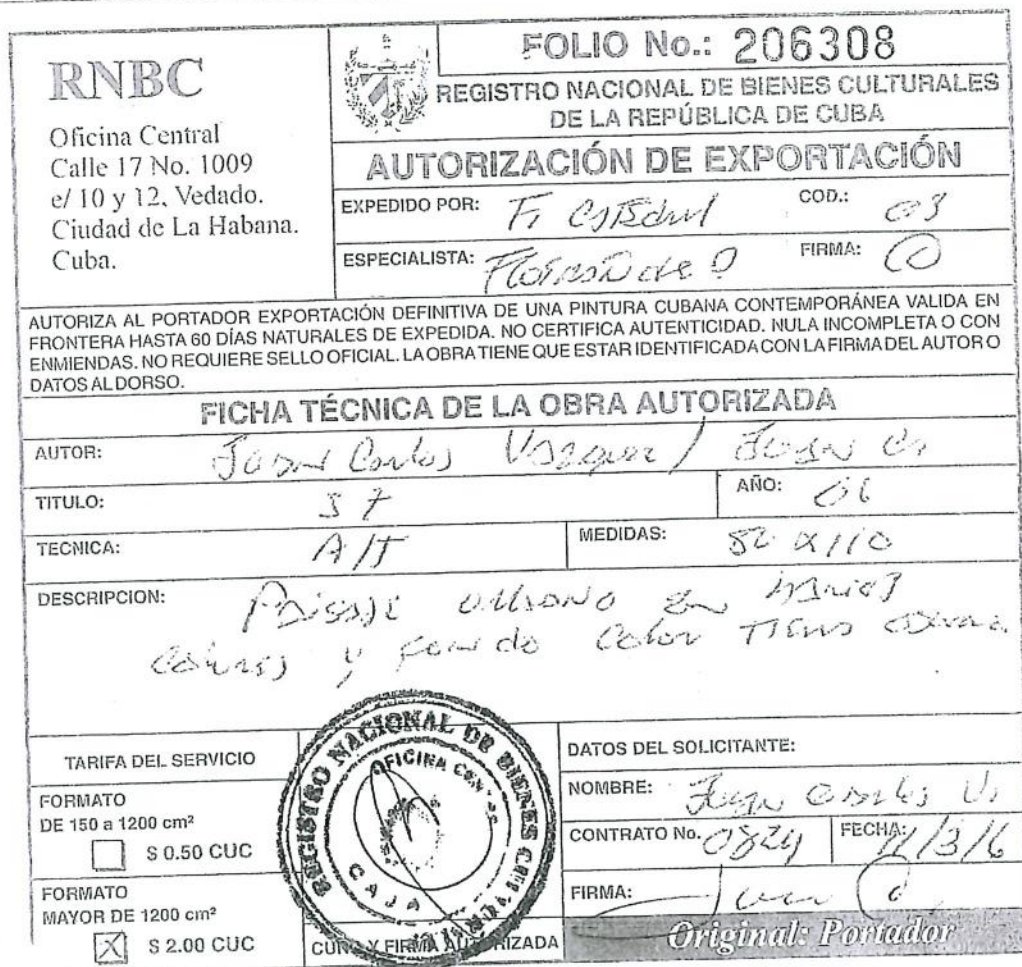 RNBC
Oficina Central
Calle 17 No. 1009
e/ 10 y 12, Vedado.
Ciudad de La Habana.
Cuba.
FOLIO No.: 206308
REGISTRO NACIONAL DE BIENES CULTURALES
DE LA REPÚBLICA DE CUBA
AUTORIZACIÓN DE EXPORTACIÓN
EXPEDIDO POR:
COD.: 03
ESPECIALISTA:
FIRMA:
AUTORIZA AL PORTADOR EXPORTACIÓN DEFINITIVA DE UNA PINTURA CUBANA CONTEMPORÁNEA VALIDA EN
FRONTERA HASTA 60 DÍAS NATURALES DE EXPEDIDA. NO CERTIFICA AUTENTICIDAD. NULA INCOMPLETA O CON
ENMIENDAS. NO REQUIERE SELLO OFICIAL. LA OBRA TIENE QUE ESTAR IDENTIFICADA CON LA FIRMA DEL AUTOR O
DATOS AL DORSO.
FICHA TÉCNICA DE LA OBRA AUTORIZADA
AUTOR: Juan Carlos Vazquez / Juan C.
TITULO: S/T
AÑO: 06
TECNICA: A/T
MEDIDAS: x 110
DESCRIPCION: Paisaje urbano en varios
colores y fondo color Tierra
TARIFA DEL SERVICIO
FORMATO
DE 150 a 1200 cm²
$ 0.50 CUC
FORMATO
MAYOR DE 1200 cm²
X $ 2.00 CUC
REGISTRO NACIONAL DE BIENES CULTURALES
OFICINA CENTRAL
CAJA
CUÑO Y FIRMA AUTORIZADA
DATOS DEL SOLICITANTE:
NOMBRE: Juan Carlos V.
CONTRATO No. 0824
FECHA: 11/3/6
FIRMA:
Original: Portador